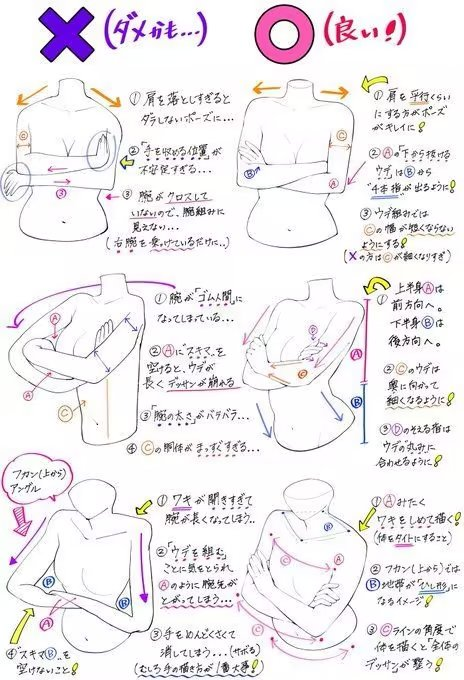 (ダメかも...)
(良い!)
① 肩を落としすぎると
ダラしないポーズに...
②「手を収める位置」が
不安定すぎる...
③ 腕がクロスして
いないので、腕組みに
見えない...
(右腕を乗っけているだけに..)
C
C
3
① 肩を平行くらい
にする方がポーズ
がキレイに!
② Aの「下から抜ける
ウデ」はBから
"4本指"が出るように!
③ ウデ組みでは
Cの幅が短くならない
ようにする!
(✕の方はCが細くなりすぎ)
C
B
A
① 腕が「ゴム人間」に
なってしまっている...
② Aに"スキマ"を
空けると、ウデが
長くデッサンが崩れる
③「腕の太さ」がバラバラ...
④ Cの胴体がまっすぐすぎる...
A
A
C
① 上半身Aは
前方向へ。
下半身Bは
後方向へ。
② Cのウデは
奥に向かって
細くなるように!
③ Dのそえる指は
ウデの"丸み"に
合わせるように!
D
C
A
B
フカン(上から)
アングル
① ワキが開きすぎて
腕が長くなってしまう..
②「ウデを組む」
ことに気をとられ
Aのように腕先が
とがってしまう...
③ 手をめんどくさくて
消してしまう...(サボる)
(むしろ手の描き方が1番大事!)
④"スキマB"を
空けないこと!
B
B
A
① Aみたく
ワキをしめて描く!
(体をタイトにすること)
② フカン(上から)では
B地帯が「ひし形」に
なるイメージ!
③ Cラインの角度で
体を描くと全体の
デッサンが整う!
B
C
A
A
C